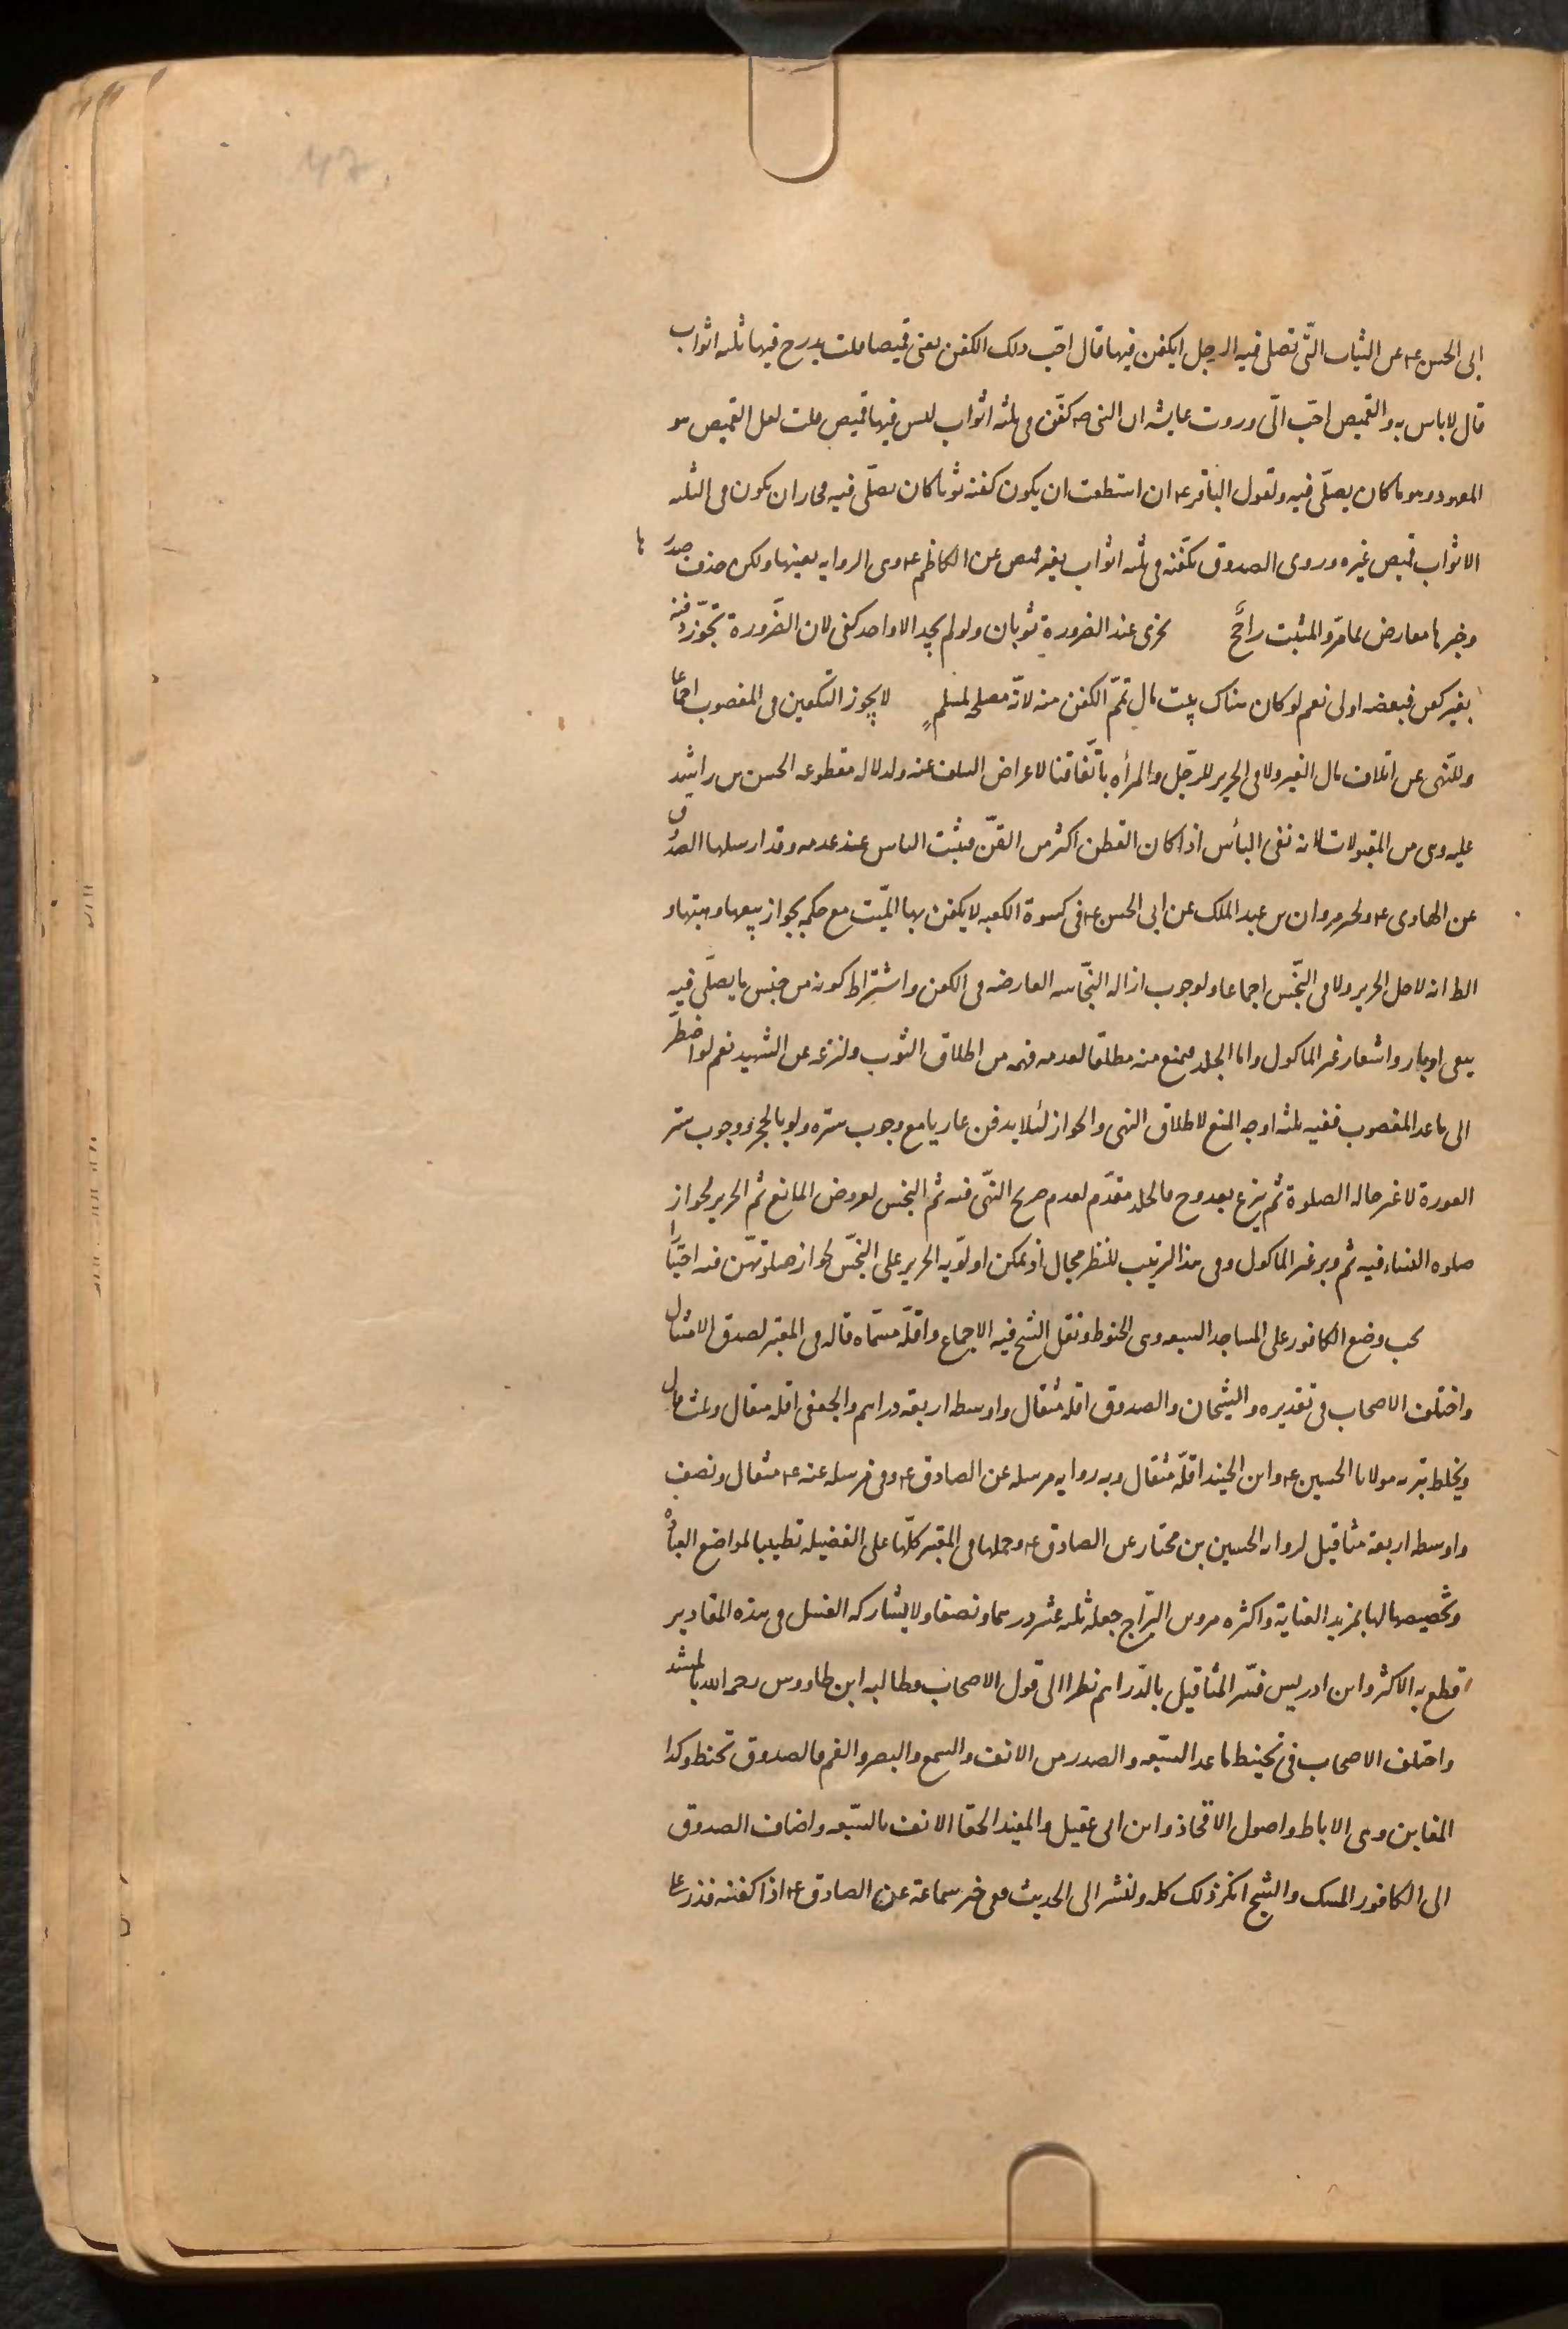 ابى الحسن ع عن الثياب التى تصلى فيه الرجل ايكفن فيها قال احب ذلك الكفن يعنى قميصا قلت يدرج فيها ثلثه اثواب
قال لا باس به والقميص احب الىّ وروت عايشه ان النبى ص كفّن فى ثلثه اثواب ليس فيها قميص قلت لعل القميص هو
المعهود وهو ما كان يصلّى فيه ولقول الباقر ع ان استطعت ان يكون كفنه ثوبا كان يصلّى فيه فجاز ان يكون فى الثلثه
الاثواب قميص غيره وروى الصدوق تكفّنه فى ثلثه اثواب بغير قميص عن الكاظم ع وهى الروايه بعينها ولكن حذف صدرها
وخبرها معارض بما مرّ والمثبت راجّح يجزى عند الضرورة ثوبان ولو لم يجد الا واحد كفى لان الضّرورة تجوّز دفنه
بغير كفن فبعضه اولى نعم لو كان هناك بيت مال تمّم الكفن منه لانّه مصلحة لمسلم لا يجوز التكفين فى المغصوب اجماعا
وللنّهى عن اتلاف مال الغير ولا فى الحرير للرّجل والمرأه باتّفاقنا لاعراض السلف عنه ولدلاله مقطوعه الحسن بن راشد
عليه وهى من المقبولات لانه نفى البأس اذا كان القطن اكثر من القزّ فيثبت الباس عند عدمه وقد ارسلها الصدوق
عن الهادى ع ولخبر مروان بن عبد الملك عن ابى الحسن ع فى كسوة الكعبه لا يكفن بها الميّت مع حكمه بجواز بيعها وهبتها و
الظ انه لاجل الحرير ولا فى النّجس اجماعا ولوجوب ازاله النّجاسه العارضه فى الكفن واشتراط كونه من جنس ما يصلّى فيه
يبقى اوبار واشعار غير الماكول واما الجلد فيمنع منه مطلقا لعدم فهمه من اطلاق الثوب ولنزعه عن الشهيد نعم لو اضطر
الى ما عدا المغصوب ففيه ثلثه اوجه المنع لاطلاق النهى والجواز لئلا يدفن عاريا مع وجوب ستره ولو بالحجر ووجوب ستر
العورة لا غير حاله الصلوة ثم ينزع بعد وح فالجلد مقدّم لعدم صريح النّهى فيه ثم النجس لعروض المانع ثم الحرير لجواز
صلوه النساء فيه ثم وبر غير الماكول وفى هذا الترتيب للنظر مجال اذ يمكن اولويّه الحرير على النجّس لجواز صلوتهنّ فيه اختيارا
يجب وضع الكافور على المساجد السبعه وهى الحنوط ونقل الشيخ فيه الاجماع واقلّه مسمّاه قاله فى المعتبر لصدق الامتثال
واختلف الاصحاب فى تقديره والشيخان والصدوق اقله مثقال واوسطه اربعه دراهم والجعفى اقله مثقال وثلث قال
ويخلط بتربه مولانا الحسين ع وابن الجنيد اقلّه مثقال وبه روايه مرسله عن الصادق ع وفى مرسله عنه ع مثقال ونصف
واوسطه اربعة مثاقيل لروايه الحسين بن مختار عن الصادق ع وحملها فى المعتبر كلّها على الفضيله تطييبا لمواضع العبادة
وتخصيصها لها بمزيد العناية واكثره مروى السّراج جعله ثلثه عشر درهما ونصفا ولا يشاركه الغسل فى هذه المقادير
قطع به الاكثر وابن ادريس فسّر المثاقيل بالدّراهم نظرا الى قول الاصحاب وطالبه ابن طاووس رحمه الله بالمستند
واختلف الاصحاب فى تحنيط ما عدا السّبعه والصدر من الانف والسمع والبصر والفم فالصدوق تحنط وكذا
المغابن وهى الاباط واصول الافخاذ وابن ابى عقيل والمفيد الحقا الانف بالسّبعه واضاف الصدوق
الى الكافور المسك والشيخ انكر ذلك كله ولنشر الى الحديث ففى خبر سماعة عن الصادق ع اذا كفنته فذر على